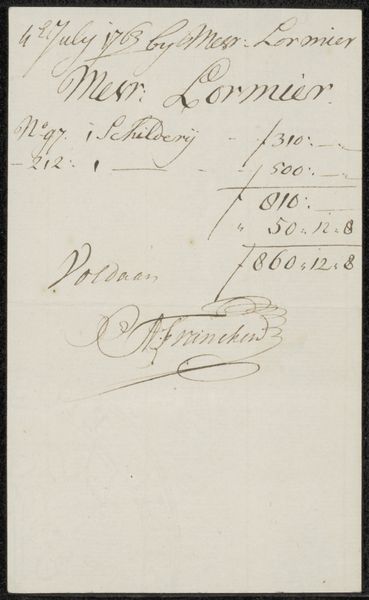 4e July 1763 by Mevr: Lormier
Mevr. Lormier.
No. 97. 1 Schildery - ƒ 310: —„
- 212: 1 — - ƒ 500: —„
ƒ 810: —
„ 50„ 12„ 8
ƒ 860„ 12„ 8
Voldaan
A: Francken